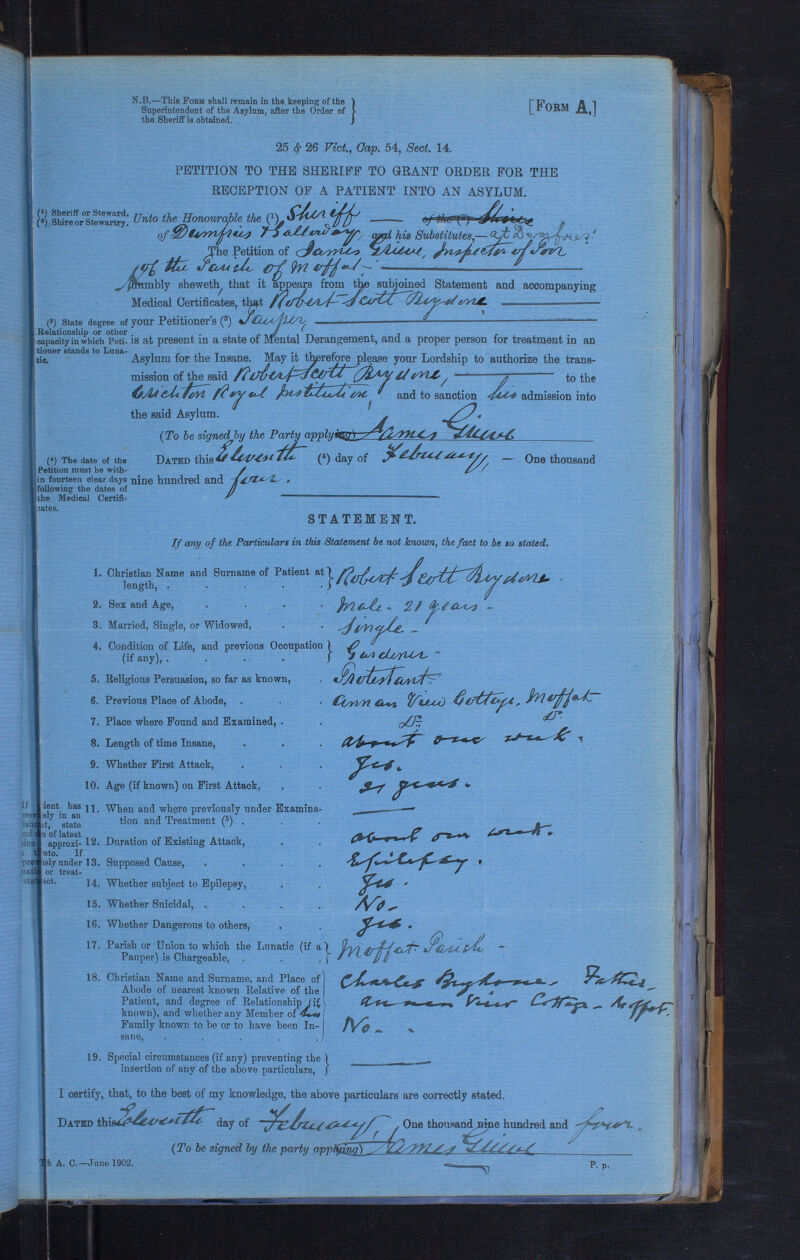 N.B.—This Form shall remain in the keeping of the
Superintendent of the Asylum, after the Order of
the Sheriff is obtained.
[Form A.]
25 & 26 Vict., Cap. 54, Sect. 14.
PETITION TO THE SHERIFF TO GRANT ORDER FOR THE
RECEPTION OF A PATIENT INTO AN ASYLUM.
(¹) Sheriff or Steward.
(²) Shire or Stewartry.
Unto the Honourable the (¹) Sheriff — of the (²) Shires
of Dumfries & Galloway, and his Substitutes,— at Dumfries
The Petition of James Grieve, Inspector of Poor
of the Parish of Moffat —
Humbly sheweth, that it appears from the subjoined Statement and accompanying
Medical Certificates, that Robert Scott Brydone
(³) State degree of
Relationship or other
capacity in which Peti-
tioner stands to Luna-
tic.
your Petitioner's (³) Pauper,
is at present in a state of Mental Derangement, and a proper person for treatment in an
Asylum for the Insane. May it therefore please your Lordship to authorize the trans-
mission of the said Robert Scott Brydone, — to the
Crichton Royal Institution, and to sanction his admission into
the said Asylum.
(To be signed by the Party applying) James Grieve
(⁴) The date of the
Petition must be with-
in fourteen clear days
following the dates of
the Medical Certifi-
cates.
Dated this Eleventh (⁴) day of February, — One thousand
nine hundred and four.
STATEMENT.
If any of the Particulars in this Statement be not known, the fact to be so stated.
1. Christian Name and Surname of Patient at
length, . Robert Scott Brydone
2. Sex and Age, Male - 21 years -
3. Married, Single, or Widowed, Single -
4. Condition of Life, and previous Occupation
(if any), . Gardener -
5. Religious Persuasion, so far as known, Protestant -
6. Previous Place of Abode, . Annan View Cottage, Moffat
7. Place where Found and Examined, . Do. Do.
8. Length of time Insane, about one week.
9. Whether First Attack, Yes.
10. Age (if known) on First Attack, 21 years.
11. When and where previously under Examina-
tion and Treatment (⁵) . —
ient has
sly in an
state
s of latest
approxi-
eto. If
usly under
or treat-
act.
12. Duration of Existing Attack, about one week.
13. Supposed Cause, Epilepsy.
14. Whether subject to Epilepsy, Yes.
15. Whether Suicidal, . No.
16. Whether Dangerous to others, Yes.
17. Parish or Union to which the Lunatic (if a
Pauper) is Chargeable, . Moffat Parish -
18. Christian Name and Surname, and Place of
Abode of nearest known Relative of the
Patient, and degree of Relationship (if
known), and whether any Member of his
Family known to be or to have been In-
sane,
Charles Brydone, Father,
Annan View Cottage - Moffat.
No.
19. Special circumstances (if any) preventing the
insertion of any of the above particulars, —
I certify, that, to the best of my knowledge, the above particulars are correctly stated.
Dated this Eleventh day of February, One thousand nine hundred and four.
(To be signed by the party applying) James Grieve
A. C.—June 1902.
P. p.